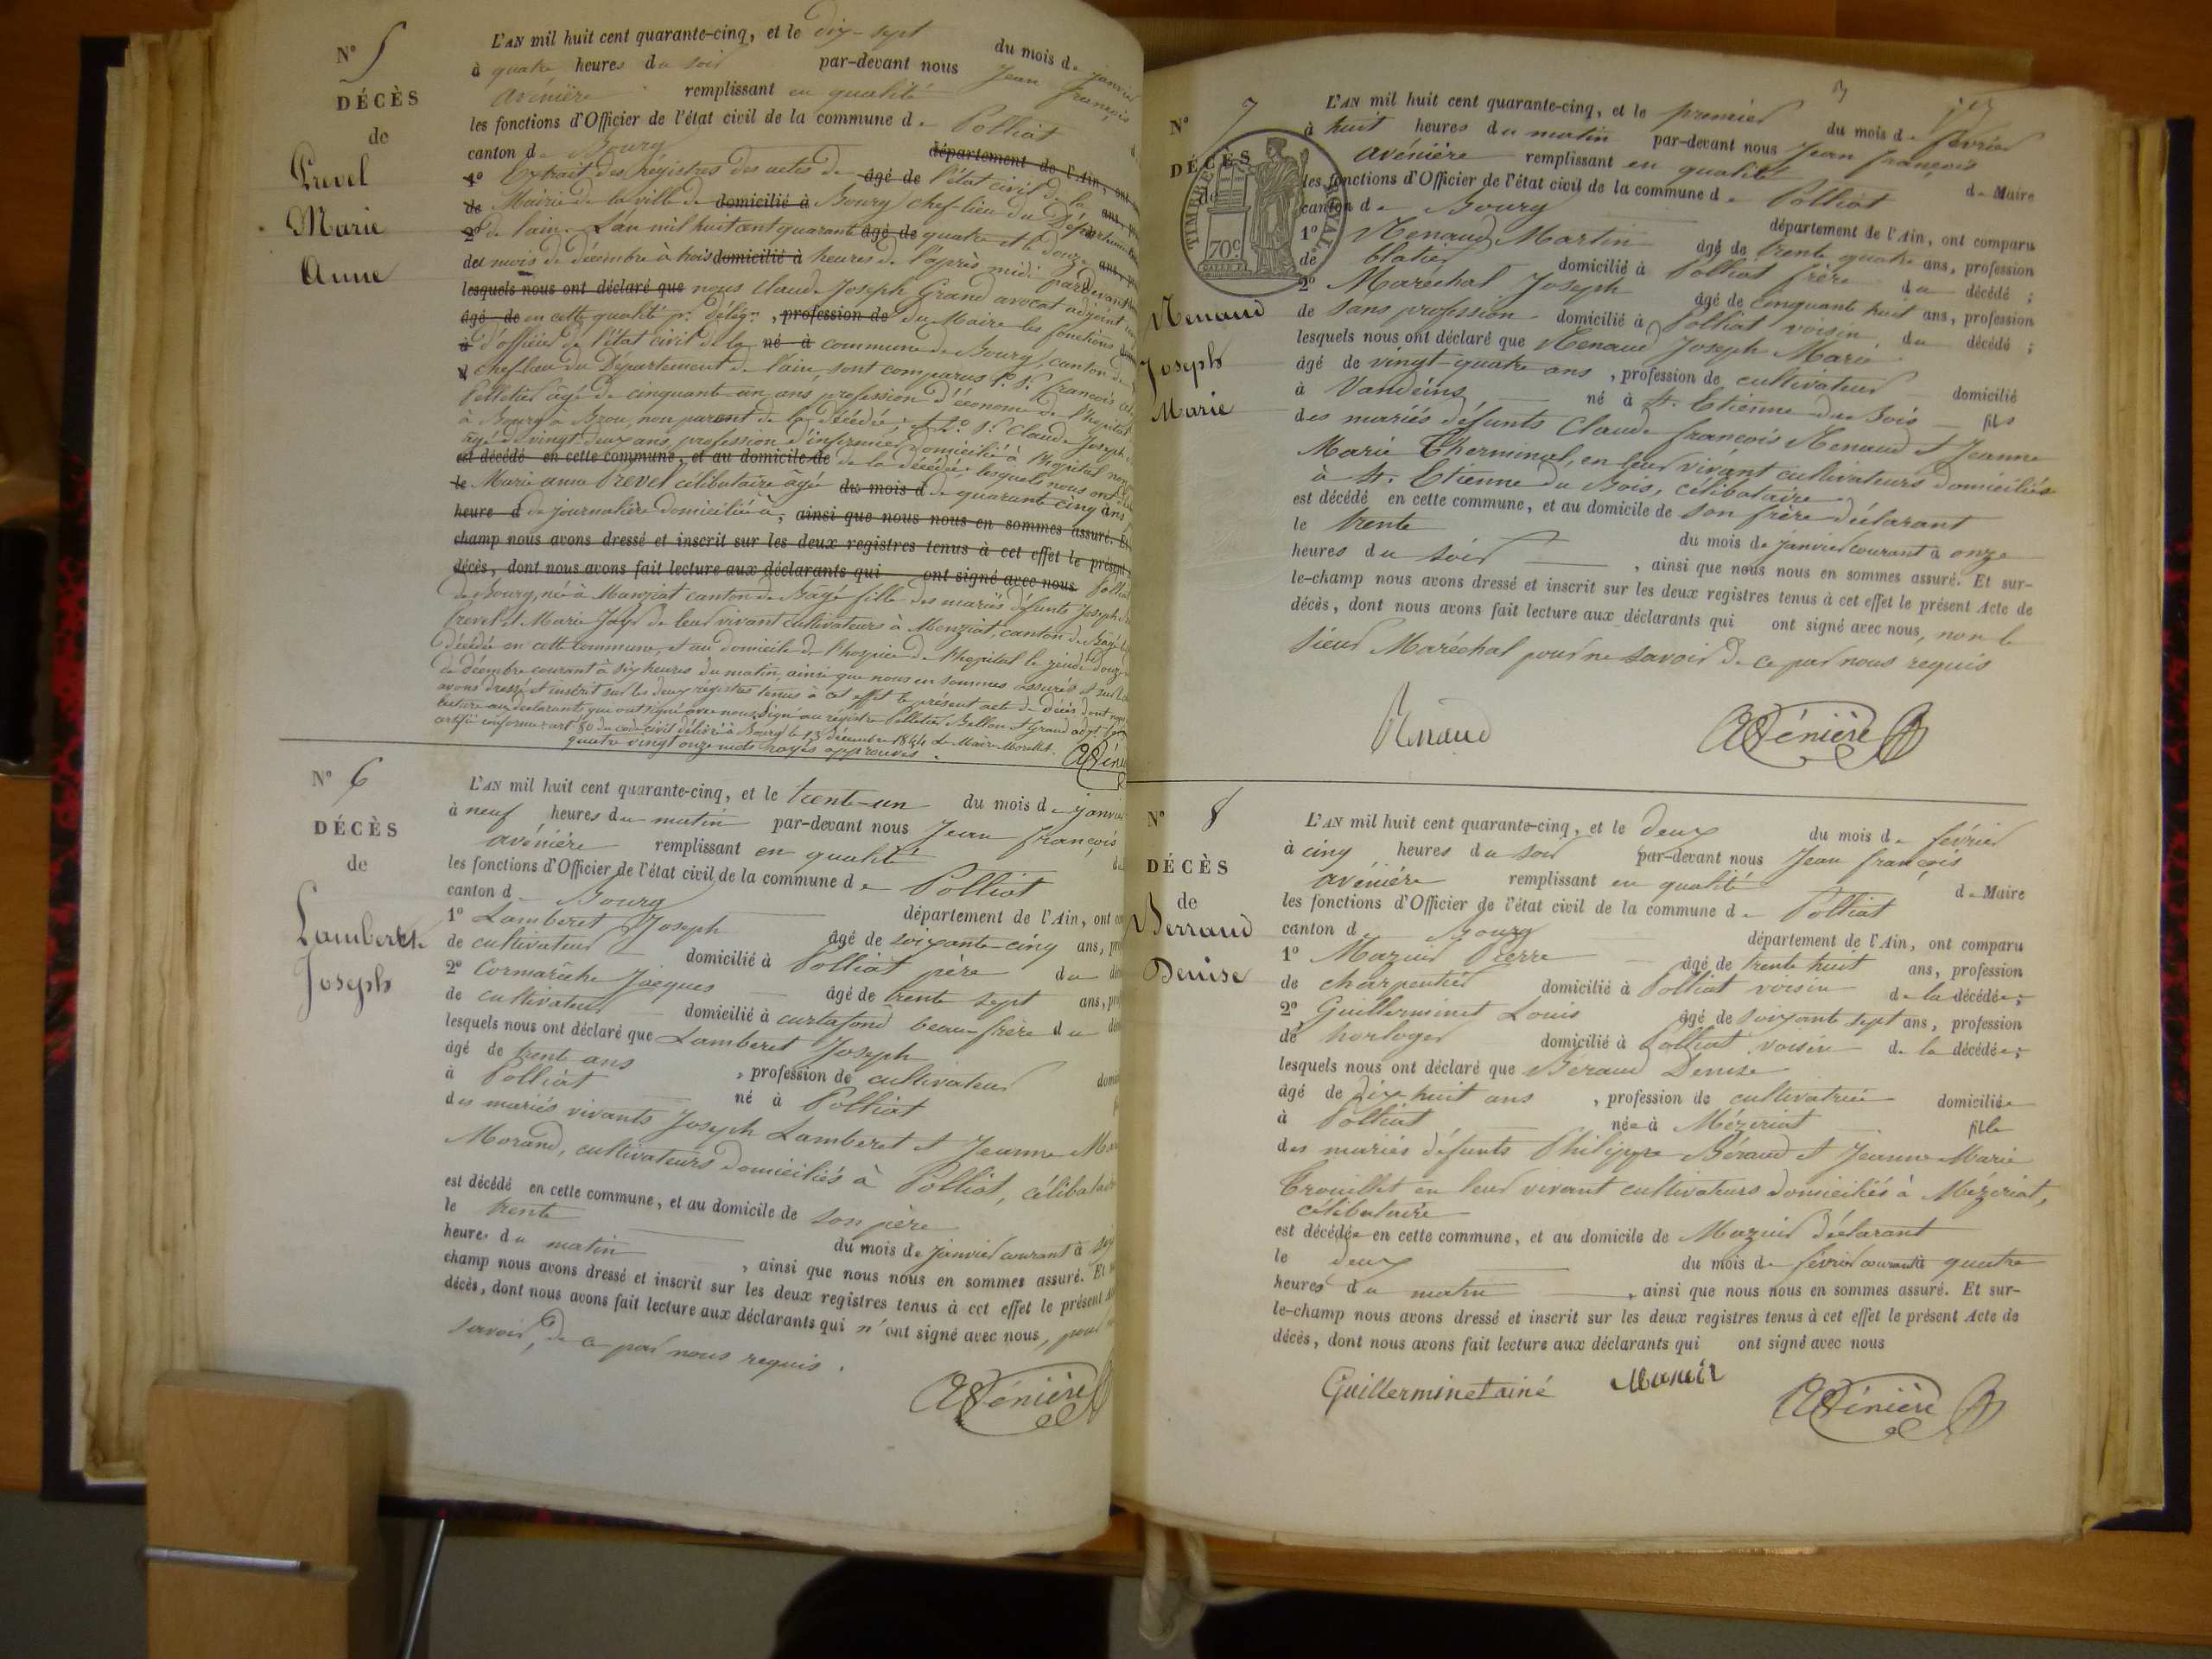 N° 5
DÉCÈS
de
Prevel
Marie
Anne
L'AN mil huit cent quarante-cinq, et le dix-sept du mois de janvier
à quatre heures du soir par-devant nous Jean françois
avénière remplissant en qualité
les fonctions d'Officier de l'état civil de la commune de Polliat
canton de Bourg département de l'Ain, ont
1° Extrait des Régistres des actes de âgé de l'état civil de la
de Mairie de la ville de domicilié à Bourg chef-lieu du Département
2° de l'ain. L'an mil huit cent quarante âgé de quatre et le douze ans,
del mois de décembre à trois domicilié à heures de l'après midi pardevant
lesquels nous ont déclaré que nous Claude Joseph Grand avocat adjoint
âgé de en cette qualité pr. délégn , profession de du Maire les fonctions
à d'officier de l'état civil de la né à commune de Bourg, canton de
chef lieu du Département de l'ain, sont comparus 1° Sr. françois
Pelletier âgé de cinquante un ans profession d'économe de l'hopital
à Bourg à Brou, non parent de la décédée; et 2° Sr. Claude Joseph
âgé de vingt deux ans, profession d'infirmier domicilié à l'hopital non
est décédé en cette commune, et au domicile de de la décédée lesquels nous ont
le Marie anne Prevel célibataire âgée du mois d de quarante cinq ans
heure d de journalière domiciliée à, ainsi que nous nous en sommes assuré. Et
champ nous avons dressé et inscrit sur les deux registres tenus à cet effet le présent
décès, dont nous avons fait lecture aux déclarants qui ont signé avec nous Polliat
de Bourg, née à Manziat canton de Bâgé fille des mariés défunts Joseph
Prevel et Marie Joly de leur vivant cultivateurs à Menziat, canton de Bagé
décédée en cette commune, et au domicile de l'hospice de l'hopital le jeudi douze
de décembre courant à six heures du matin, ainsi que nous en sommes assurés et sur
avons dressé et inscrit sur les deux régistres tenus à cet effet le présent acte de décès dont nous
lecture aux déclarants qui ont signé avec nous. Signé au régistre Pelletier Bellon et Grand adjt.
certifié conforme : art 80 du code civil délivré à Bourg le 13 décembre 1844 Le Maire Morellet.
quatre vingt onze mots rayés approuvés.
AVénière
N° 6
DÉCÈS
de
Lamberet
Joseph
L'AN mil huit cent quarante-cinq, et le trente-un du mois de janvier
à neuf heures du matin par-devant nous Jean françois
avénière remplissant en qualité
les fonctions d'Officier de l'état civil de la commune de Polliat
canton de Bourg
département de l'Ain, ont
1° Lamberet Joseph âgé de soixante-cinq ans,
de cultivateur domicilié à Polliat père du
2° Cormarèche Jacques âgé de trente sept ans,
de cultivateur domicilié à curtafond beau-frère du
lesquels nous ont déclaré que Lamberet Joseph
âgé de trente ans , profession de cultivateur
à Polliat né à Polliat
des mariés vivants Joseph Lamberet et Jeanne
Morand, cultivateurs domiciliés à Polliat, célibataire
est décédé en cette commune, et au domicile de son père
le trente du mois de janvier courant à
heure du matin , ainsi que nous nous en sommes assuré. Et
champ nous avons dressé et inscrit sur les deux registres tenus à cet effet le présent
décès, dont nous avons fait lecture aux déclarants qui n'ont signé avec nous, pour
savoir, de ce par nous requis.
AVénière
N° 7
DÉCÈS
de
TIMBRE ROYAL
70c
Renaud
Joseph
Marie
L'AN mil huit cent quarante-cinq, et le premier du mois de février
à huit heures du matin par-devant nous Jean françois
avénière remplissant en qualité de Maire
les fonctions d'Officier de l'état civil de la commune de Polliat
canton de Bourg département de l'Ain, ont comparu
1° Renaud Martin âgé de trente quatre ans, profession
de blatier domicilié à Polliat frère du décédé ;
2° Maréchal Joseph âgé de cinquante huit ans, profession
de sans profession domicilié à Polliat voisin du décédé ;
lesquels nous ont déclaré que Renaud Joseph Marie
âgé de vingt-quatre ans , profession de cultivateur domicilié
à Vandeins né à St. Etienne du Bois fils
des mariés défunts Claude françois Renaud et Jeanne
Marie Therminal, en leur vivant cultivateurs domiciliés
à St. Etienne du Bois, célibataire
est décédé en cette commune, et au domicile de son frère déclarant
le trente du mois de janvier courant à onze
heures du soir , ainsi que nous nous en sommes assuré. Et sur-
le-champ nous avons dressé et inscrit sur les deux registres tenus à cet effet le présent Acte de
décès, dont nous avons fait lecture aux déclarants qui ont signé avec nous, non le
sieur Maréchal pour ne savoir de ce par nous requis
Renaud AVénière
N° 8
DÉCÈS
de
Berraud
Denise
L'AN mil huit cent quarante-cinq, et le deux du mois de février
à cinq heures du soir par-devant nous Jean françois
avénière remplissant en qualité de Maire
les fonctions d'Officier de l'état civil de la commune de Polliat
canton de Bourg département de l'Ain, ont comparu
1° Mazuir Pierre âgé de trente huit ans, profession
de charpentier domicilié à Polliat voisin de la décédée;
2° Guillerminet Louis âgé de soixante sept ans, profession
de horloger domicilié à Polliat voisin de la décédée;
lesquels nous ont déclaré que Béraud Denise
âgé de dix huit ans , profession de cultivatrice domiciliée
à Polliat née à Mézériat fille
des mariés défunts Philippe Béraud et Jeanne Marie
Trouillet en leur vivant cultivateurs domiciliés à Mézériat,
célibataire
est décédée en cette commune, et au domicile de Mazuir déclarant
le deux du mois de février courant à quatre
heures du matin , ainsi que nous nous en sommes assuré. Et sur-
le-champ nous avons dressé et inscrit sur les deux registres tenus à cet effet le présent Acte de
décès, dont nous avons fait lecture aux déclarants qui ont signé avec nous
Guillerminet ainé AVénière